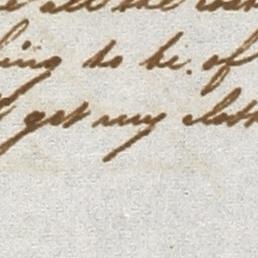 all the
ling to be. of
get my cloth